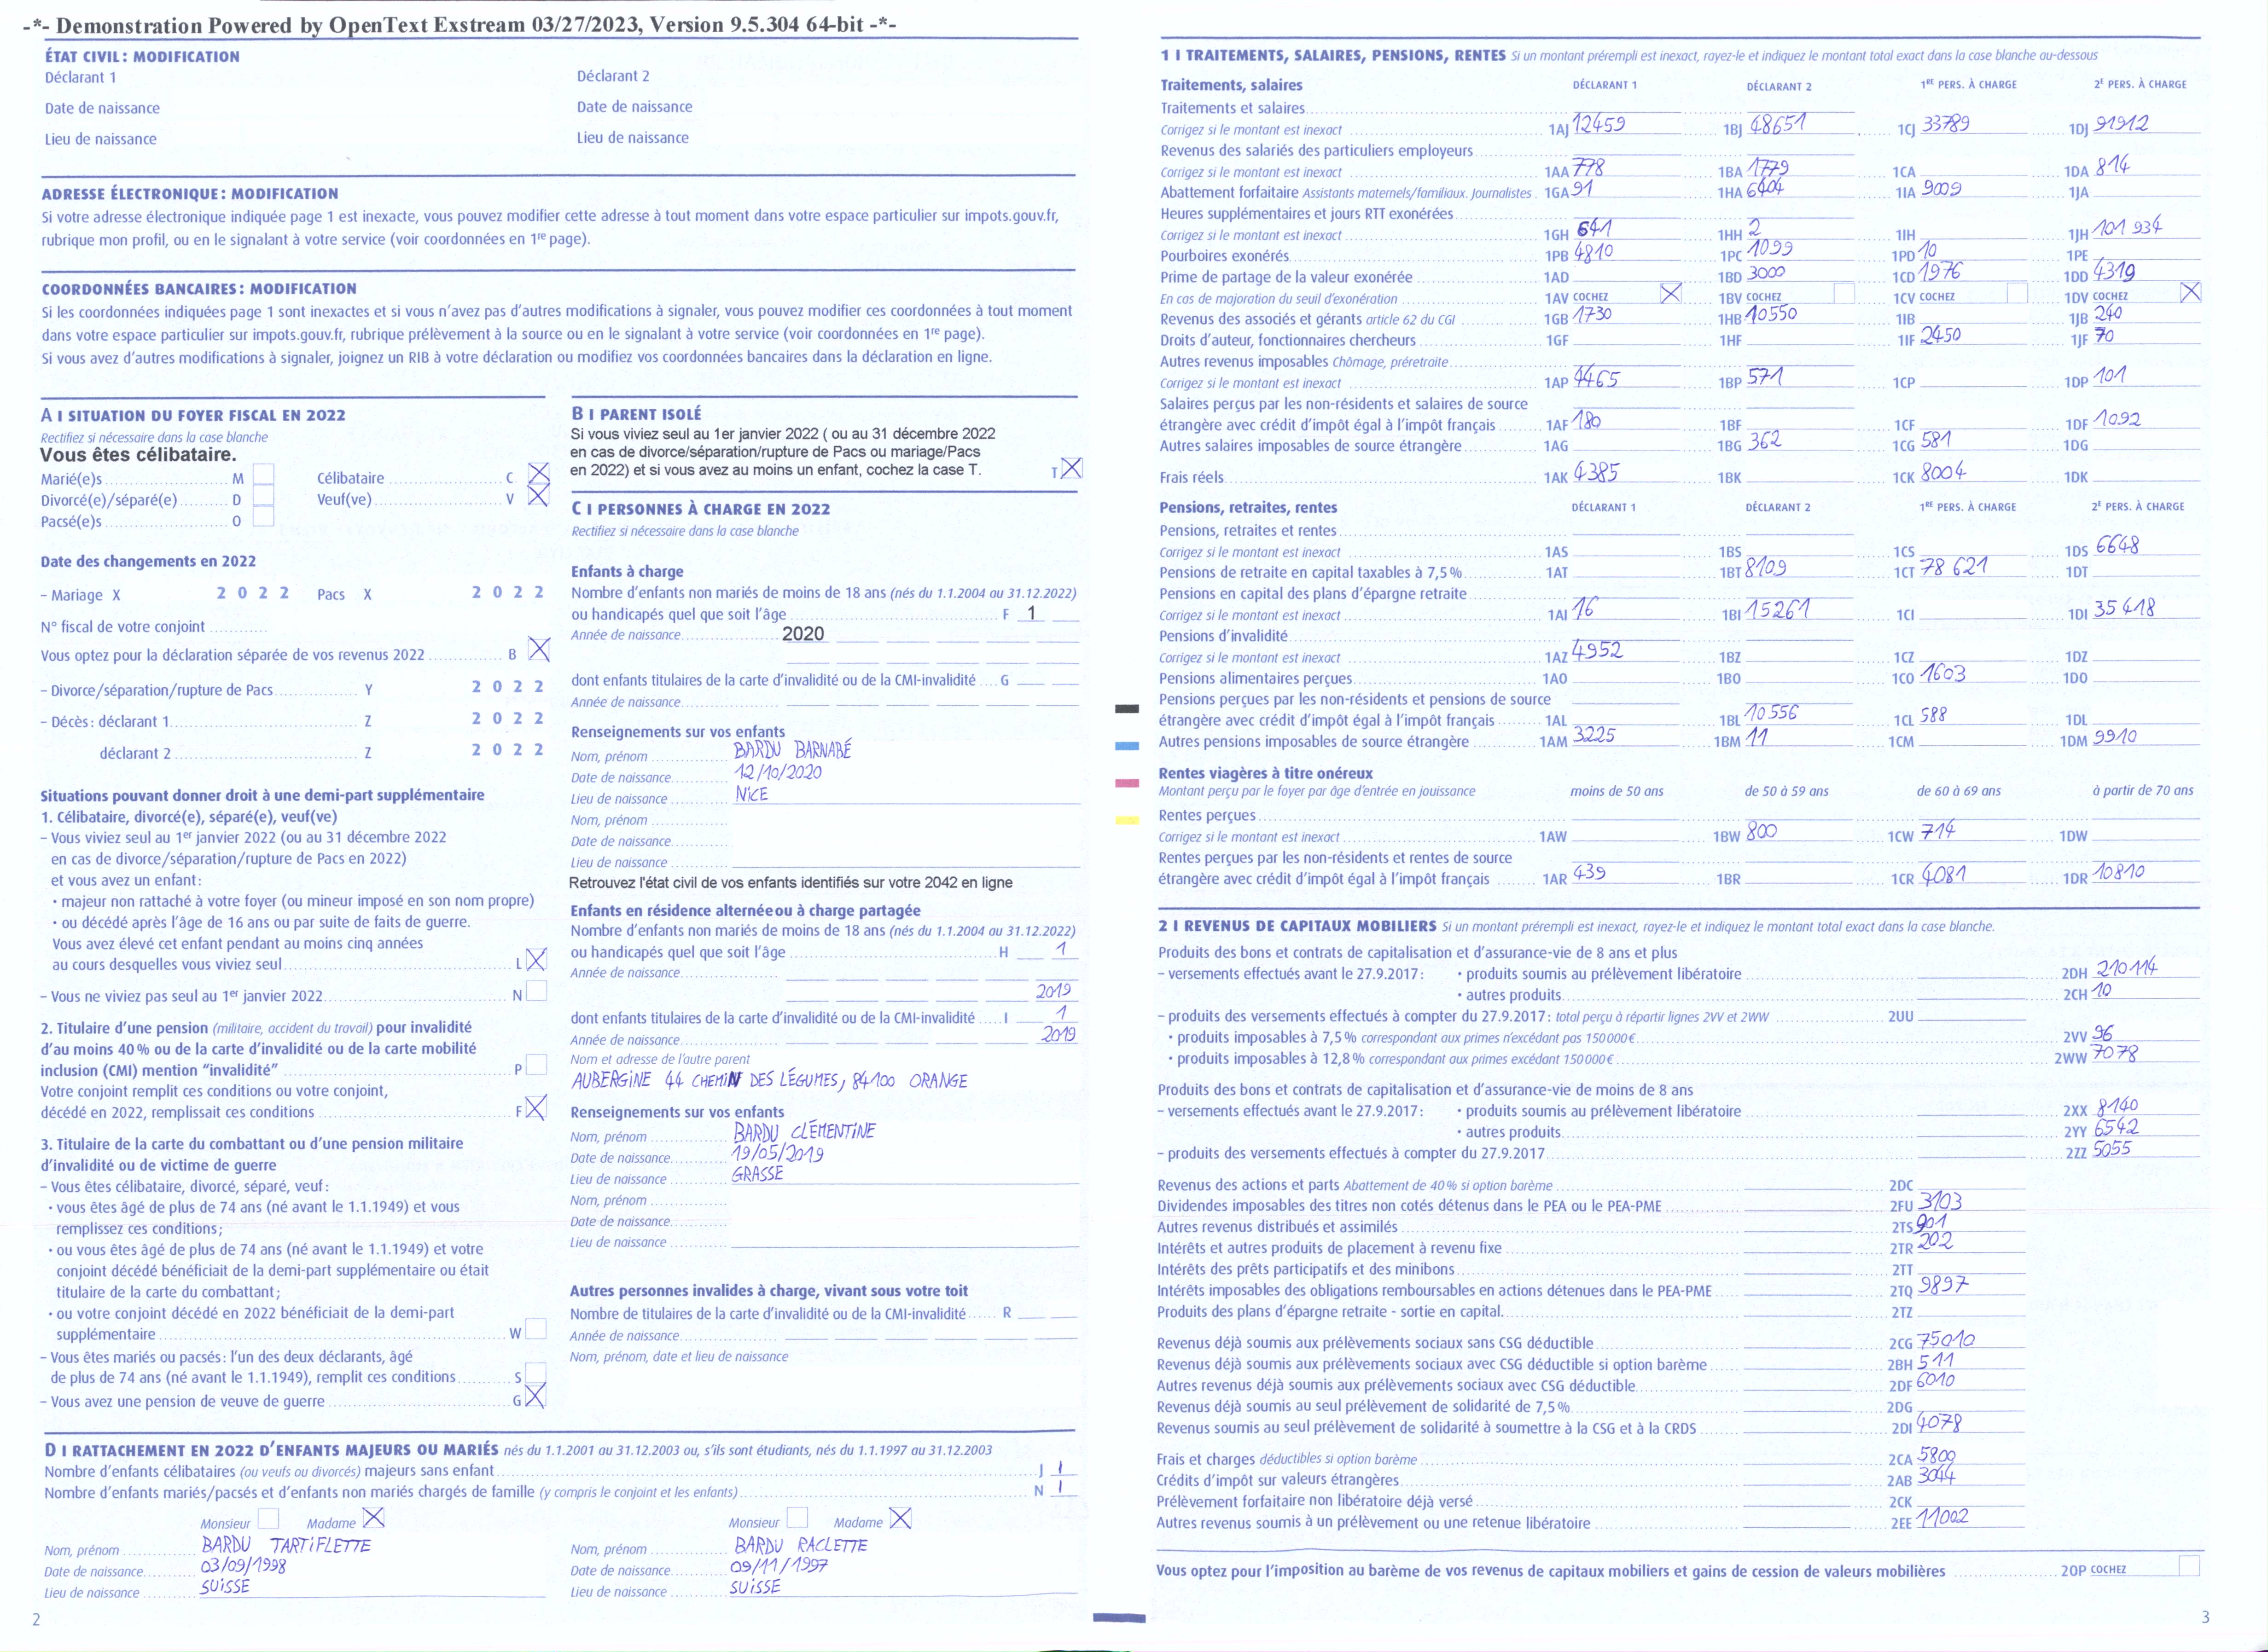 -*- Demonstration Powered by OpenText Exstream 03/27/2023, Version 9.5.304 64-bit -*-
ÉTAT CIVIL : MODIFICATION
Déclarant 1 Déclarant 2
Date de naissance Date de naissance
Lieu de naissance Lieu de naissance
ADRESSE ÉLECTRONIQUE : MODIFICATION
Si votre adresse électronique indiquée page 1 est inexacte, vous pouvez modifier cette adresse à tout moment dans votre espace particulier sur impots.gouv.fr,
rubrique mon profil, ou en le signalant à votre service (voir coordonnées en 1re page).
COORDONNÉES BANCAIRES : MODIFICATION
Si les coordonnées indiquées page 1 sont inexactes et si vous n'avez pas d'autres modifications à signaler, vous pouvez modifier ces coordonnées à tout moment
dans votre espace particulier sur impots.gouv.fr, rubrique prélèvement à la source ou en le signalant à votre service (voir coordonnées en 1re page).
Si vous avez d'autres modifications à signaler, joignez un RIB à votre déclaration ou modifiez vos coordonnées bancaires dans la déclaration en ligne.
A I SITUATION DU FOYER FISCAL EN 2022
Rectifiez si nécessaire dans la case blanche
Vous êtes célibataire.
Marié(e)s M Célibataire C X
Divorcé(e)/séparé(e) D Veuf(ve) V X
Pacsé(e)s O
Date des changements en 2022
- Mariage X 2 0 2 2 Pacs X 2 0 2 2
N° fiscal de votre conjoint
Vous optez pour la déclaration séparée de vos revenus 2022 B X
- Divorce/séparation/rupture de Pacs Y 2 0 2 2
- Décès : déclarant 1 Z 2 0 2 2
déclarant 2 Z 2 0 2 2
Situations pouvant donner droit à une demi-part supplémentaire
1. Célibataire, divorcé(e), séparé(e), veuf(ve)
- Vous viviez seul au 1er janvier 2022 (ou au 31 décembre 2022
en cas de divorce/séparation/rupture de Pacs en 2022)
et vous avez un enfant :
• majeur non rattaché à votre foyer (ou mineur imposé en son nom propre)
• ou décédé après l'âge de 16 ans ou par suite de faits de guerre.
Vous avez élevé cet enfant pendant au moins cinq années
au cours desquelles vous viviez seul L X
- Vous ne viviez pas seul au 1er janvier 2022 N
2. Titulaire d'une pension (militaire, accident du travail) pour invalidité
d'au moins 40 % ou de la carte d'invalidité ou de la carte mobilité
inclusion (CMI) mention "invalidité" P
Votre conjoint remplit ces conditions ou votre conjoint,
décédé en 2022, remplissait ces conditions F X
3. Titulaire de la carte du combattant ou d'une pension militaire
d'invalidité ou de victime de guerre
- Vous êtes célibataire, divorcé, séparé, veuf :
• vous êtes âgé de plus de 74 ans (né avant le 1.1.1949) et vous
remplissez ces conditions ;
• ou vous êtes âgé de plus de 74 ans (né avant le 1.1.1949) et votre
conjoint décédé bénéficiait de la demi-part supplémentaire ou était
titulaire de la carte du combattant ;
• ou votre conjoint décédé en 2022 bénéficiait de la demi-part
supplémentaire W
- Vous êtes mariés ou pacsés : l'un des deux déclarants, âgé
de plus de 74 ans (né avant le 1.1.1949), remplit ces conditions S
- Vous avez une pension de veuve de guerre G X
B I PARENT ISOLÉ
Si vous viviez seul au 1er janvier 2022 ( ou au 31 décembre 2022
en cas de divorce/séparation/rupture de Pacs ou mariage/Pacs
en 2022) et si vous avez au moins un enfant, cochez la case T. T X
C I PERSONNES À CHARGE EN 2022
Rectifiez si nécessaire dans la case blanche
Enfants à charge
Nombre d'enfants non mariés de moins de 18 ans (nés du 1.1.2004 au 31.12.2022)
ou handicapés quel que soit l'âge F 1
Année de naissance 2020
dont enfants titulaires de la carte d'invalidité ou de la CMI-invalidité G
Année de naissance
Renseignements sur vos enfants
Nom, prénom BARDU BARNABÉ
Date de naissance 12/10/2020
Lieu de naissance NICE
Nom, prénom
Date de naissance
Lieu de naissance
Retrouvez l'état civil de vos enfants identifiés sur votre 2042 en ligne
Enfants en résidence alternée ou à charge partagée
Nombre d'enfants non mariés de moins de 18 ans (nés du 1.1.2004 au 31.12.2022)
ou handicapés quel que soit l'âge H 1
Année de naissance
2019
dont enfants titulaires de la carte d'invalidité ou de la CMI-invalidité I 1
Année de naissance 2019
Nom et adresse de l'autre parent
AUBERGINE 44 CHEMIN DES LÉGUMES, 84100 ORANGE
Renseignements sur vos enfants
Nom, prénom BARDU CLÉMENTINE
Date de naissance 19/05/2019
Lieu de naissance GRASSE
Nom, prénom
Date de naissance
Lieu de naissance
Autres personnes invalides à charge, vivant sous votre toit
Nombre de titulaires de la carte d'invalidité ou de la CMI-invalidité R
Année de naissance
Nom, prénom, date et lieu de naissance
D I RATTACHEMENT EN 2022 D'ENFANTS MAJEURS OU MARIÉS nés du 1.1.2001 au 31.12.2003 ou, s'ils sont étudiants, nés du 1.1.1997 au 31.12.2003
Nombre d'enfants célibataires (ou veufs ou divorcés) majeurs sans enfant J 1
Nombre d'enfants mariés/pacsés et d'enfants non mariés chargés de famille (y compris le conjoint et les enfants) N 1
Monsieur Madame X Monsieur Madame X
Nom, prénom BARDU TARTIFLETTE Nom, prénom BARDU RACLETTE
Date de naissance 03/09/1998 Date de naissance 09/11/1997
Lieu de naissance SUISSE Lieu de naissance SUISSE
2
1 I TRAITEMENTS, SALAIRES, PENSIONS, RENTES Si un montant prérempli est inexact, rayez-le et indiquez le montant total exact dans la case blanche au-dessous
Traitements, salaires DÉCLARANT 1 DÉCLARANT 2 1RE PERS. À CHARGE 2E PERS. À CHARGE
Traitements et salaires
Corrigez si le montant est inexact 1AJ 12459 1BJ 48651 1CJ 33789 1DJ 91912
Revenus des salariés des particuliers employeurs
Corrigez si le montant est inexact 1AA 778 1BA 1779 1CA 1DA 814
Abattement forfaitaire Assistants maternels/familiaux. Journalistes 1GA 91 1HA 6404 1IA 9009 1JA
Heures supplémentaires et jours RTT exonérées
Corrigez si le montant est inexact 1GH 641 1HH 2 1IH 1JH 101 934
Pourboires exonérés 1PB 4810 1PC 1099 1PD 10 1PE
Prime de partage de la valeur exonérée 1AD 1BD 3000 1CD 1976 1DD 4319
En cas de majoration du seuil d'exonération 1AV COCHEZ X 1BV COCHEZ 1CV COCHEZ 1DV COCHEZ X
Revenus des associés et gérants article 62 du CGI 1GB 1730 1HB 10550 1IB 1JB 240
Droits d'auteur, fonctionnaires chercheurs 1GF 1HF 1IF 2450 1JF 70
Autres revenus imposables Chômage, préretraite
Corrigez si le montant est inexact 1AP 4465 1BP 571 1CP 1DP 101
Salaires perçus par les non-résidents et salaires de source
étrangère avec crédit d'impôt égal à l'impôt français 1AF 180 1BF 1CF 1DF 1092
Autres salaires imposables de source étrangère 1AG 1BG 362 1CG 581 1DG
Frais réels 1AK 4385 1BK 1CK 8004 1DK
Pensions, retraites, rentes DÉCLARANT 1 DÉCLARANT 2 1RE PERS. À CHARGE 2E PERS. À CHARGE
Pensions, retraites et rentes
Corrigez si le montant est inexact 1AS 1BS 1CS 1DS 6648
Pensions de retraite en capital taxables à 7,5 % 1AT 1BT 8109 1CT 78 621 1DT
Pensions en capital des plans d'épargne retraite
Corrigez si le montant est inexact 1AI 16 1BI 15261 1CI 1DI 35 418
Pensions d'invalidité
Corrigez si le montant est inexact 1AZ 4952 1BZ 1CZ 1DZ
Pensions alimentaires perçues 1AO 1BO 1CO 1603 1DO
Pensions perçues par les non-résidents et pensions de source
étrangère avec crédit d'impôt égal à l'impôt français 1AL 1BL 10556 1CL 588 1DL
Autres pensions imposables de source étrangère 1AM 3225 1BM 11 1CM 1DM 9910
Rentes viagères à titre onéreux
Montant perçu par le foyer par âge d'entrée en jouissance moins de 50 ans de 50 à 59 ans de 60 à 69 ans à partir de 70 ans
Rentes perçues
Corrigez si le montant est inexact 1AW 1BW 800 1CW 714 1DW
Rentes perçues par les non-résidents et rentes de source
étrangère avec crédit d'impôt égal à l'impôt français 1AR 439 1BR 1CR 4081 1DR 10810
2 I REVENUS DE CAPITAUX MOBILIERS Si un montant prérempli est inexact, rayez-le et indiquez le montant total exact dans la case blanche.
Produits des bons et contrats de capitalisation et d'assurance-vie de 8 ans et plus
- versements effectués avant le 27.9.2017 : • produits soumis au prélèvement libératoire 2DH 210114
• autres produits 2CH 10
- produits des versements effectués à compter du 27.9.2017 : total perçu à répartir lignes 2VV et 2WW 2UU
• produits imposables à 7,5 % correspondant aux primes n'excédant pas 150 000 € 2VV 96
• produits imposables à 12,8 % correspondant aux primes excédant 150 000 € 2WW 7078
Produits des bons et contrats de capitalisation et d'assurance-vie de moins de 8 ans
- versements effectués avant le 27.9.2017 : • produits soumis au prélèvement libératoire 2XX 8140
• autres produits 2YY 6542
- produits des versements effectués à compter du 27.9.2017 2ZZ 5055
Revenus des actions et parts Abattement de 40 % si option barème 2DC
Dividendes imposables des titres non cotés détenus dans le PEA ou le PEA-PME 2FU 3103
Autres revenus distribués et assimilés 2TS 901
Intérêts et autres produits de placement à revenu fixe 2TR 202
Intérêts des prêts participatifs et des minibons 2TT
Intérêts imposables des obligations remboursables en actions détenues dans le PEA-PME 2TQ 9897
Produits des plans d'épargne retraite - sortie en capital. 2TZ
Revenus déjà soumis aux prélèvements sociaux sans CSG déductible 2CG 75010
Revenus déjà soumis aux prélèvements sociaux avec CSG déductible si option barème 2BH 511
Autres revenus déjà soumis aux prélèvements sociaux avec CSG déductible 2DF 6010
Revenus déjà soumis au seul prélèvement de solidarité de 7,5 % 2DG
Revenus soumis au seul prélèvement de solidarité à soumettre à la CSG et à la CRDS 2DI 4078
Frais et charges déductibles si option barème 2CA 5800
Crédits d'impôt sur valeurs étrangères 2AB 3044
Prélèvement forfaitaire non libératoire déjà versé 2CK
Autres revenus soumis à un prélèvement ou une retenue libératoire 2EE 11002
Vous optez pour l'imposition au barème de vos revenus de capitaux mobiliers et gains de cession de valeurs mobilières 2OP COCHEZ
3